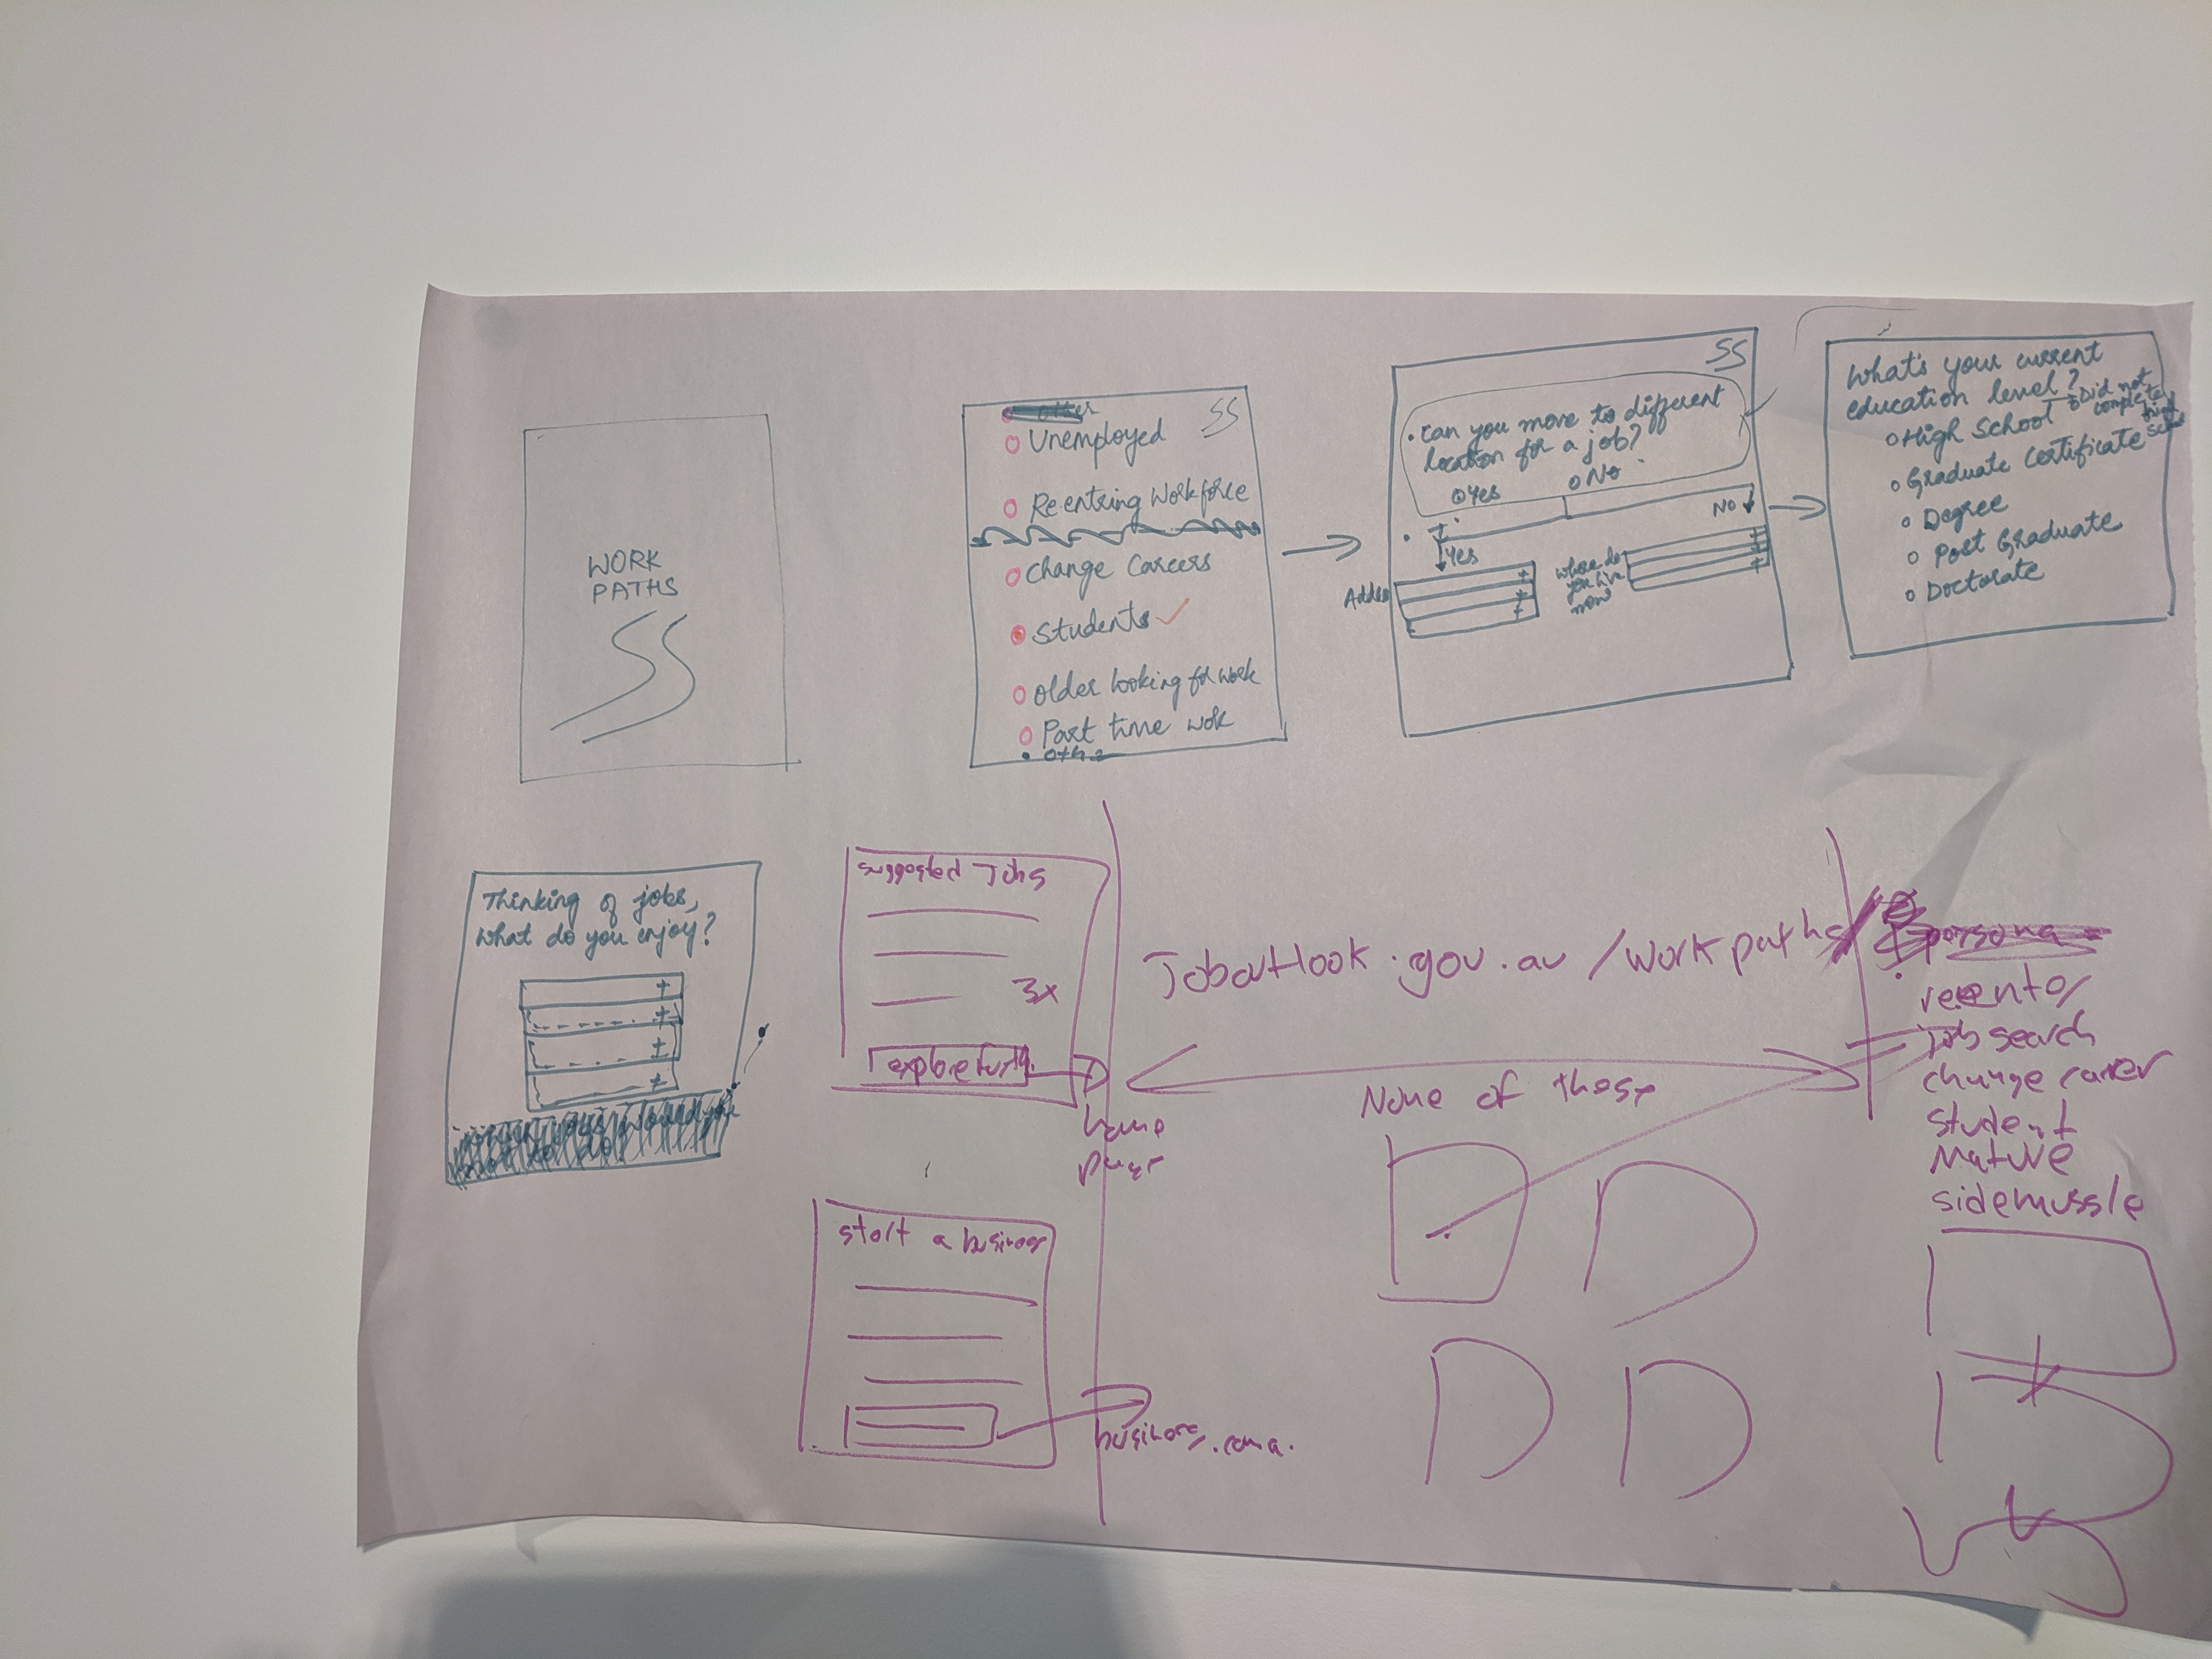 WORK
PATHS
other
Unemployed
Reentring Workforce
Change Careers
Students
older looking for work
Part time wok
SS
Can you move to different
location for a job?
Yes
No
No
Yes
Where do
you live
now
SS
What's your current
education level?
Did not
complete
high
High School
Graduate Certificate
Degree
Post Graduate
Doctorate
Thinking of jobs,
what do you enjoy?
suggested Jobs
3x
explore
home
page
Joboutlook.gov.au/workpaths/
None of these
persona
Job search
change career
student
Mature
sidemussle
start a business